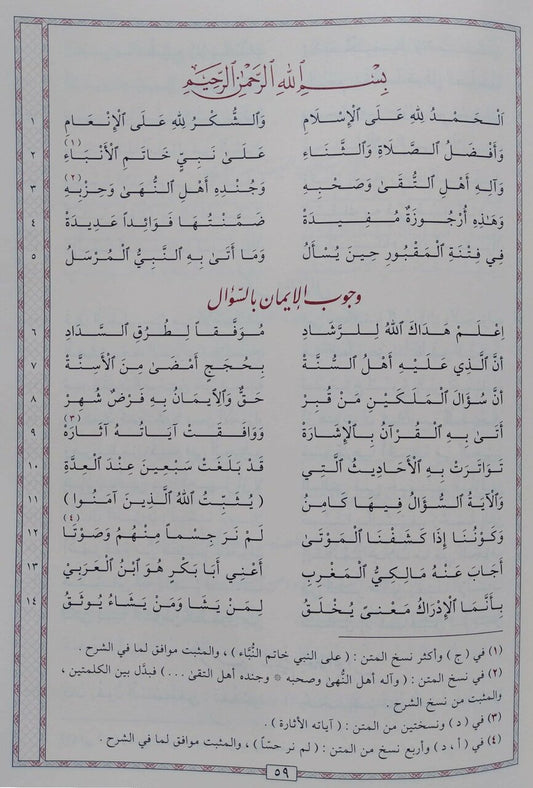 بِسْمِ ٱللهِ ٱلرَّحْمٰنِ ٱلرَّحِيْمِ
ٱلْحَمْدُ لِلهِ عَلَى ٱلْإِسْلَامِ وَٱلشُّكْرُ لِلهِ عَلَى ٱلْإِنْعَامِ ١
وَأَفْضَلُ ٱلصَّلَاةِ وَٱلثَّنَاءِ عَلَىٰ نَبِيٍّ خَاتَمِ ٱلْأَنْبَاءِ (١) ٢
وَآلِهِ أَهْلِ ٱلتُّقَىٰ وَصَحْبِهِ وَجُنْدِهِ أَهْلِ ٱلنُّهَىٰ وَحِزْبِهِ (٢) ٣
وَهَـٰذِهِ أُرْجُوزَةٌ مُفِيدَةْ ضَمَّنْتُهَا فَوَائِداً عَدِيدَةْ ٤
فِي فِتْنَةِ ٱلْمَقْبُورِ حِينَ يُسْأَلُ وَمَا أَتَىٰ بِهِ ٱلنَّبِيُّ ٱلْمُرْسَلُ ٥
وجوب الإيمان بالسؤال
اِعْلَمْ هَدَاكَ ٱللهُ لِلرَّشَادِ مُوَفَّقاً لِطُرُقِ ٱلسَّدَادِ ٦
أَنَّ ٱلَّذِي عَلَيْهِ أَهْلُ ٱلسُّنَّةْ بِحُجَجٍ أَمْضَىٰ مِنَ ٱلْأَسِنَّةْ ٧
أَنَّ سُؤَالَ ٱلْمَلَكَيْنِ مَنْ قُبِرْ حَقٌّ وَٱلِٱيمَانُ بِهِ فَرْضٌ شُهِرْ ٨
أَتَىٰ بِهِ ٱلْقُرْآنُ بِٱلْإِشَارَةْ وَوَافَقَتْ آيَاتُهُ آثَارَهْ (٣) ٩
تَوَاتَرَتْ بِهِ ٱلْأَحَادِيثُ ٱلَّتِي قَدْ بَلَغَتْ سَبْعِينَ عِنْدَ ٱلْعِدَّةِ ١٠
وَٱلْآيَةُ ٱلسُّؤَالُ فِيهَا كَامِنُ ( يُثَبِّتُ ٱللهُ ٱلَّذِينَ آمَنُوا ) ١١
وَكَوْنُنَا إِذَا كَشَفْنَا ٱلْمَوْتَىٰ لَمْ نَرَ جِسْماً مِنْهُمُ وَصَوْتَا (٤) ١٢
أَجَابَ عَنْهُ مَالِكِيُّ ٱلْمَغْرِبِ أَعْنِي أَبَا بَكْرٍ هُوَ ٱبْنُ ٱلْعَرَبِيْ ١٣
بِأَنَّمَا ٱلْإِدْرَاكُ مَعْنىً يُخْلَقُ لِمَنْ يَشَا وَمَنْ يَشَاءُ يُوثَقُ ١٤
(١) في ( ج ) وأكثر نسخ المتن : ( على النبي خاتم النُّبَّاء ) ، والمثبت موافق لما في الشرح .
(٢) في نسخ المتن : ( وآله أهل النُّهىٰ وصحبه * وجنده أهل التقىٰ . . . ) فبدَّل بين الكلمتين ،
والمثبت من نسخ الشرح .
(٣) في ( د ) ونسختين من المتن : ( آياته الأثارة ) .
(٤) في ( أ ، د ) وأربع نسخ من المتن : ( لم نر حسّاً ) ، والمثبت موافق لما في الشرح .
٥٩